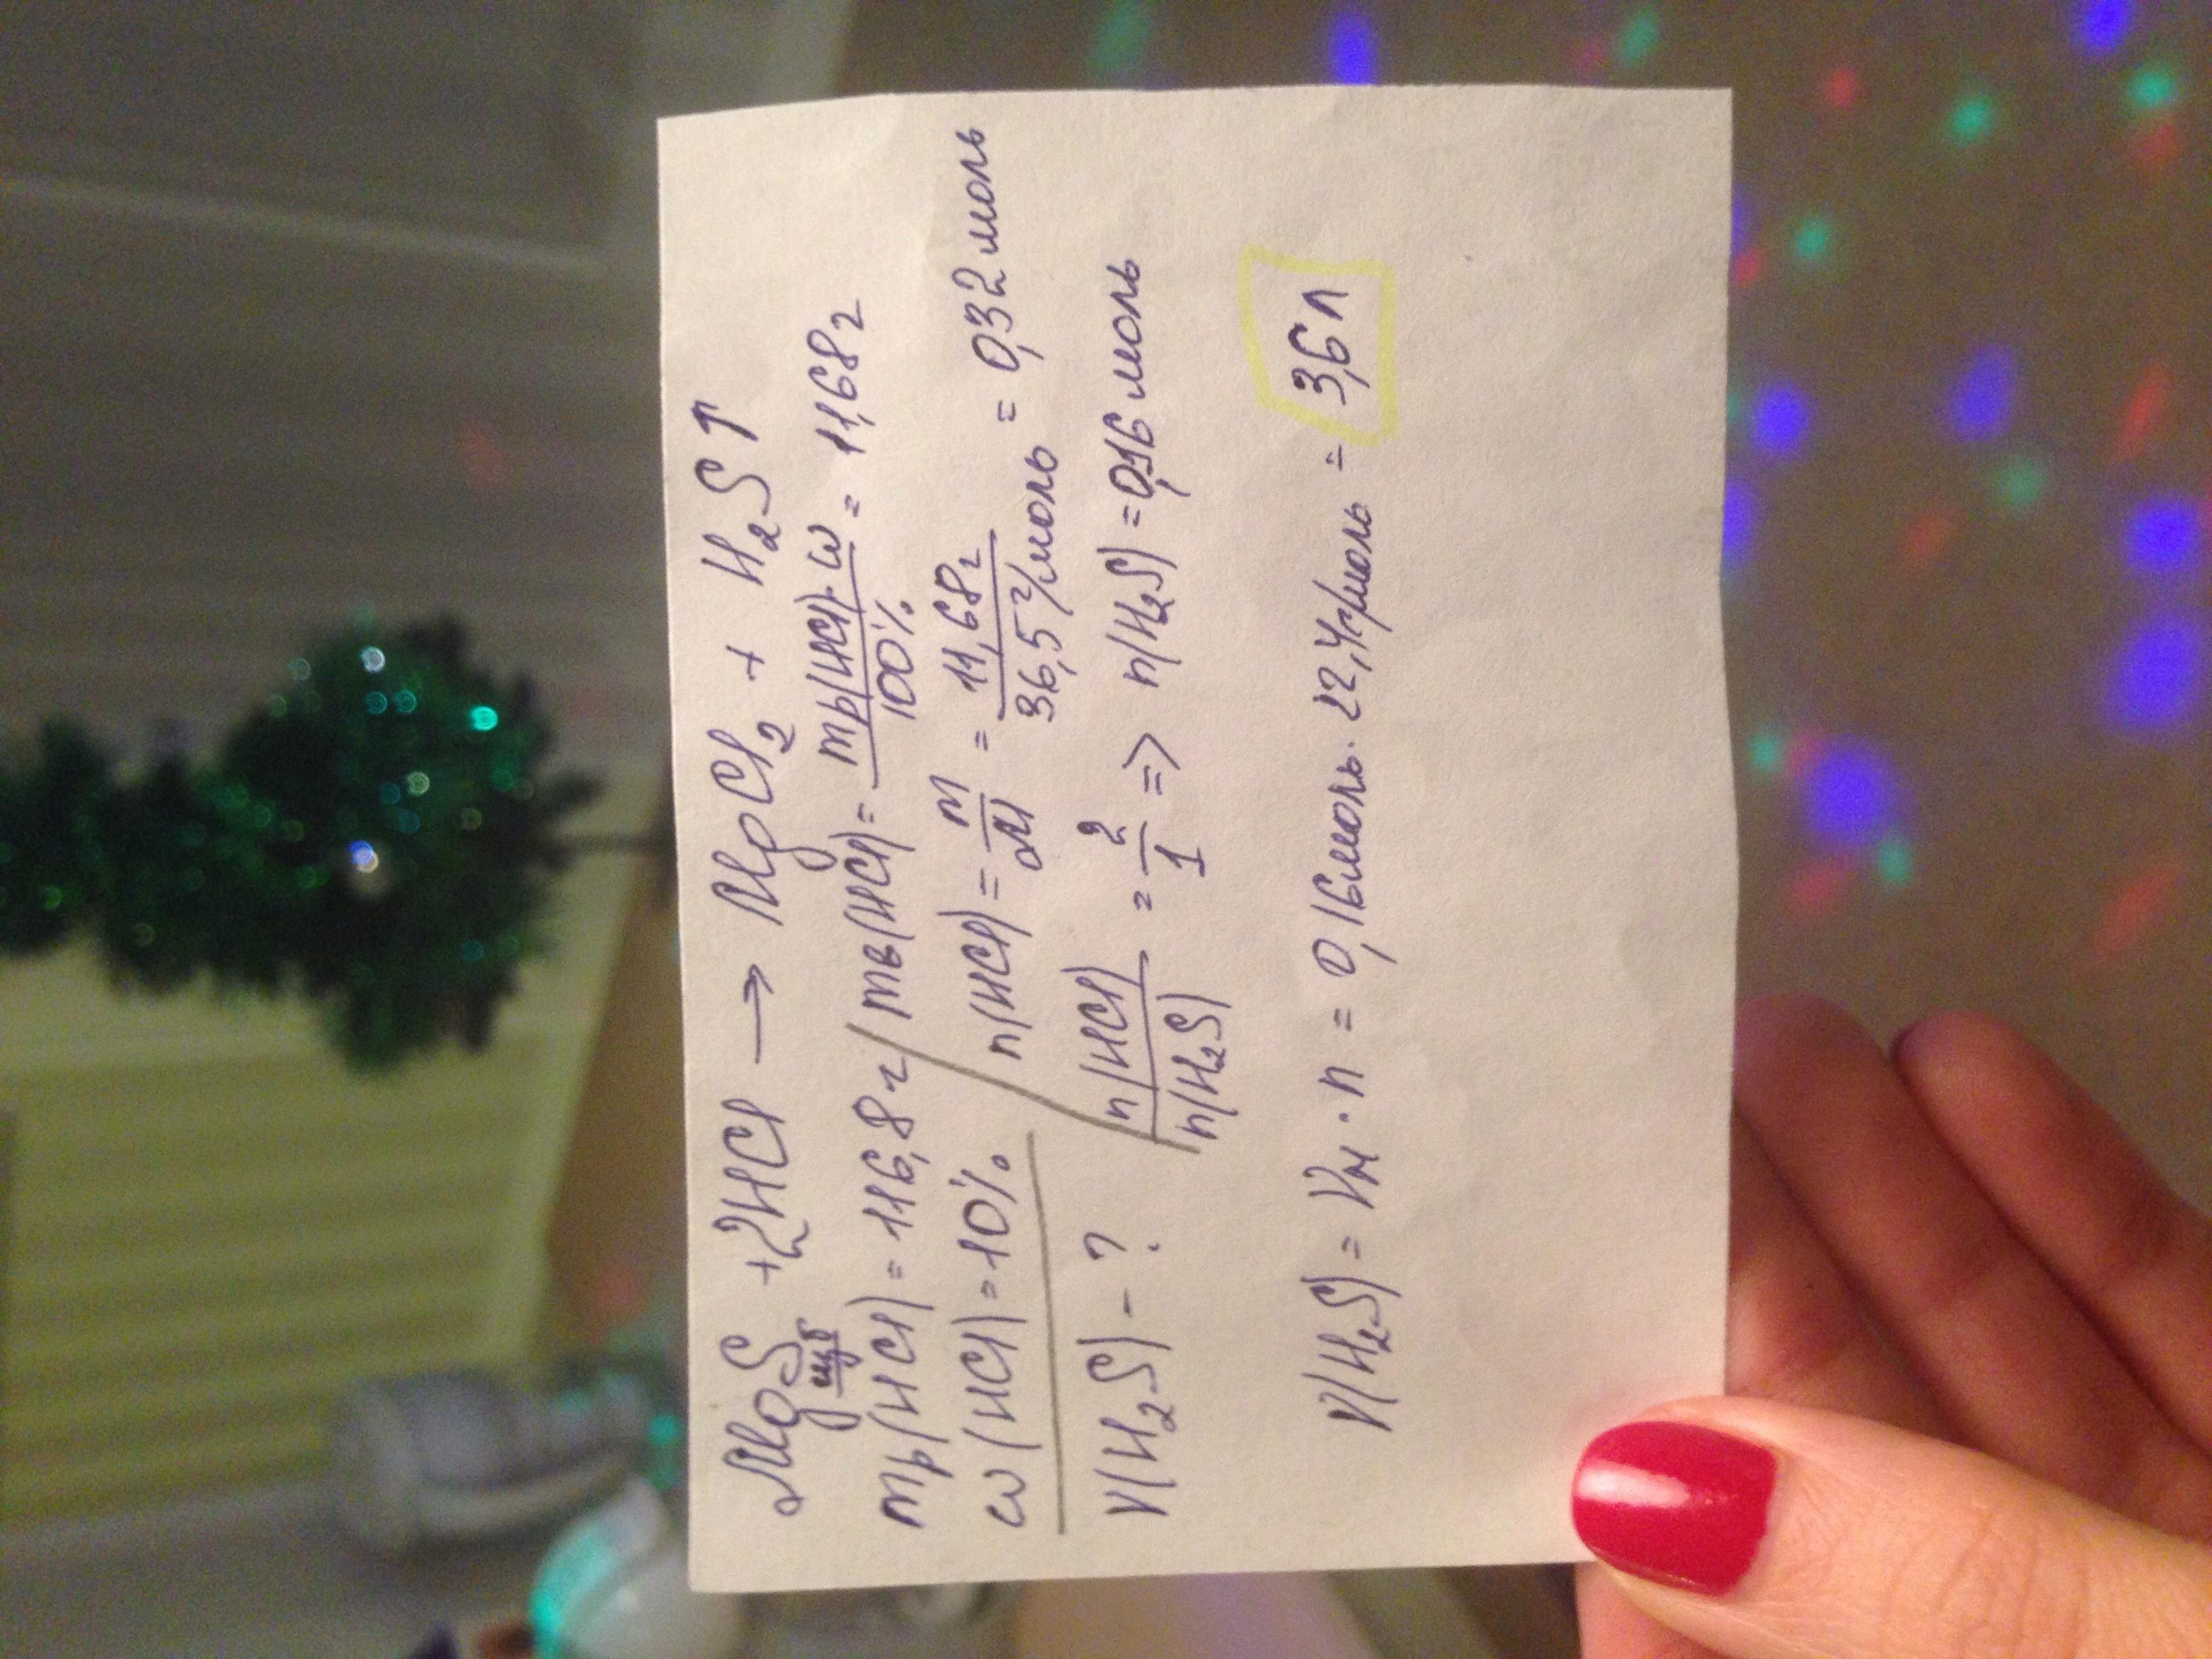 MgS + 2HCl → MgCl₂ + H₂S↑
изб
mр(HCl) = 116,8 г
ω(HCl) = 10%
V(H₂S) - ?
mв(HCl) = mр(HCl)·ω / 100% = 11,68 г
n(HCl) = m/M = 11,68 г / 36,5 г/моль = 0,32 моль
n(HCl) / n(H₂S) = 2/1 => n(H₂S) = 0,16 моль
V(H₂S) = Vм · n = 0,16 моль · 22,4 г/моль = 3,6 л